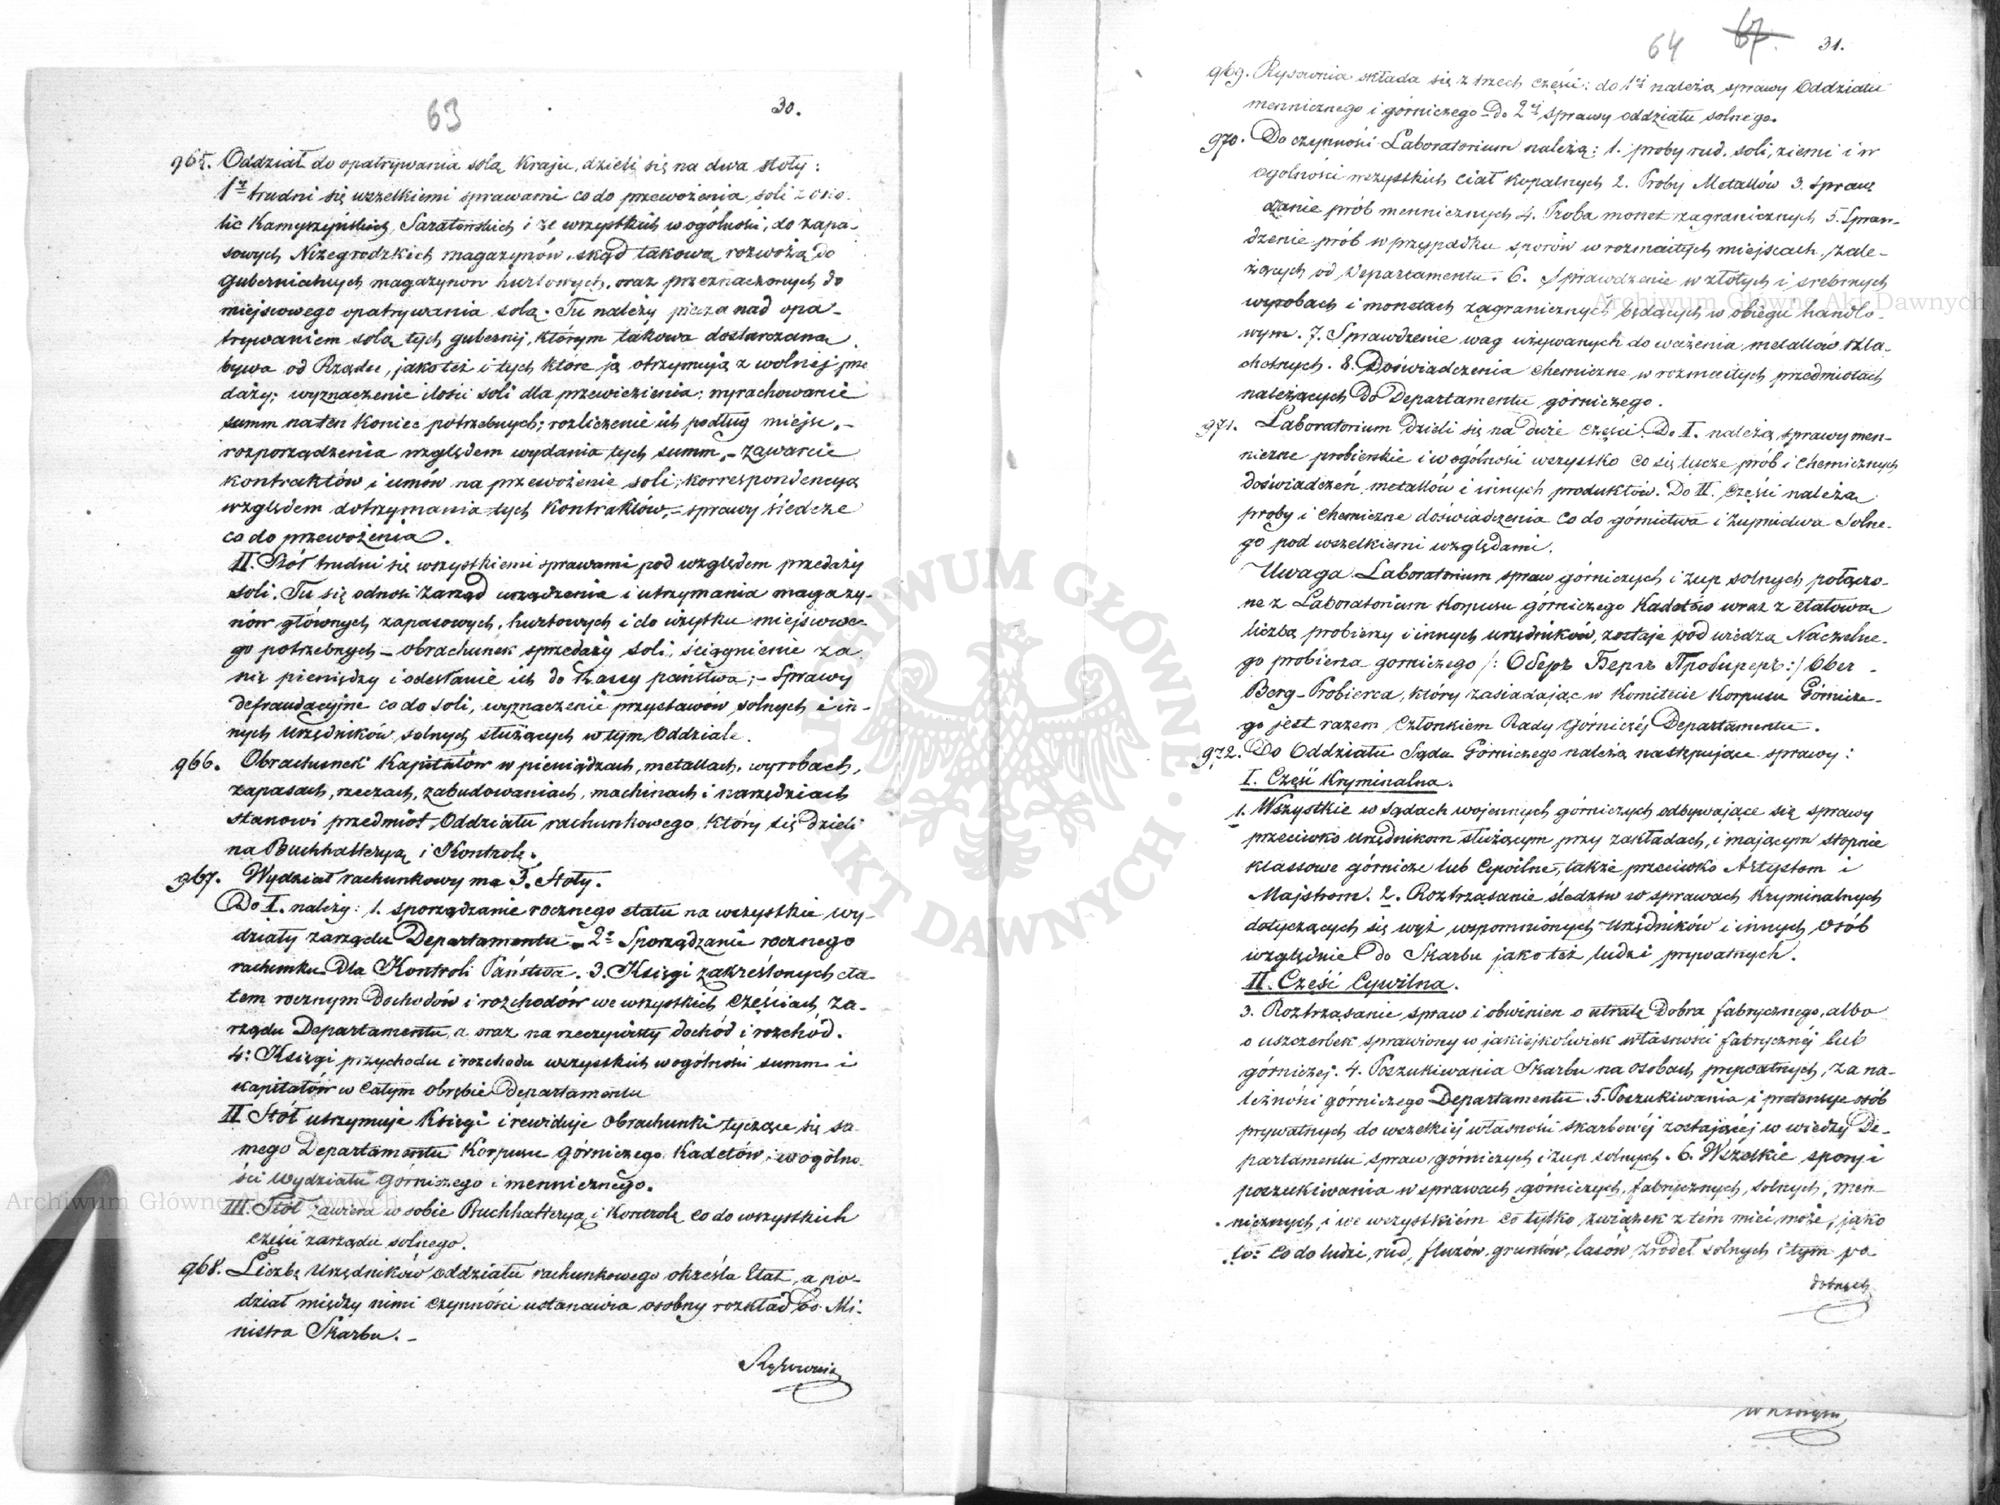 63
30.
965. Oddział do opatrywania solą kraju, dzieli się na dwa stoły:
1y trudni się wszelkiemi sprawami co do przewożenia soli z oko-
lic Kamyszyńskich, Saratowskich i ze wszystkich w ogólności, do zapa-
sowych Niżegrodzkich magazynów, skąd takową rozwożą do
gubernialnych magazynów hurtowych, oraz przeznaczonych do
miejscowego opatrywania solą. Tu należy piecza nad opa-
trywaniem solą tych gubernij, którym takowa dostarczana
bywa od Rządu, jako też i tych które ją otrzymują z wolnej prze
daży; wyznaczenie ilości soli dla przewiezienia; wyrachowanie
summ na ten koniec potrzebnych; rozliczenie ich podług miejsc,-
rozporządzenia względem wydania tych summ,- zawarcie
kontraktów i umów na przewożenie soli, korrespondencya
względem dotrzymania tych kontraktów,- sprawy śledcze
co do przewożenia.
II. Stół trudni się wszystkiemi sprawami pod względem przedaży
soli. Tu się odnosi zarząd urządzenia i utrzymania magazy-
nów głównych zapasowych, hurtowych i do użytku miejscowe-
go potrzebnych - obrachunek sprzedaży soli, ściągnienie za
nią pieniędzy i odesłanie ich do kassy państwa;- Sprawy
defraudacyjne co do soli, wyznaczenie przystawów solnych i in-
nych urzędników solnych służących w tym Oddziale.
966. Obrachunek kapitałów w pieniądzach, metallach, wyrobach,
zapasach, rzeczach, zabudowaniach, machinach i narzędziach
stanowi przedmiot Oddziału rachunkowego, który się dzieli
na Buchhalteryą i Kontrolę.
967. Wydział rachunkowy ma 3. Stoły.
Do I. należy: 1. sporządzanie rocznego etatu na wszystkie wy-
działy zarządu Departamentu - 2e Sporządzanie rocznego
rachunku dla Kontroli Państwa. 3. Księgi zakreślonych eta
tem rocznym dochodów i rozchodów we wszystkich częściach za-
rządu Departamentu, a oraz na rzeczywisty dochód i rozchód.
4: Księgi przychodu i rozchodu wszystkich w ogólności summ i
kapitałów w całym obrębie Departamentu
II Stół utrzymuje Księgi i rewiduje obrachunki tyczące się sa-
mego Departamentu Korpusu górniczego Kadetów, i w ogólno-
ści Wydziału górniczego i menniczego.
III. Stół zawiera w sobie Buchhalteryą i Kontrolę co do wszystkich
części zarządu solnego.
968. Liczbę Urzędników oddziału rachunkowego określa Etat, a po-
dział między nimi czynności ustanawia osobny rozkład Mi-
nistra Skarbu.-
Rysownia
64 67. 31.
969. Rysownia składa się z trzech części: do 1éj należą sprawy Oddziału
menniczego i górniczego Do 2éj sprawy oddziału solnego.
970. Do czynności Laboratorium należą: 1. proby rud, soli, ziemi i w
ogólności wszystkich ciał kopalnych 2. Proby Metallów 3. Spraw
dzanie prób menniczych 4. Proba monet zagranicznych 5. Spraw-
dzenie prób w przypadku sporów w rozmaitych miejscach, zale-
żących od Departamentu. 6. Sprawdzenie w złotych i srebrnych
wyrobach i monetach zagranicznych będących w obiegu handlo-
wym. 7. Sprawdzenie wag używanych do ważenia metallów szla-
chetnych. 8. Doświadczenia chemiczne w rozmaitych przedmiotach
należących Do Departamentu górniczego.
971. Laboratorium dzieli się na duże części. Do I. należą sprawy men-
nicze probierskie i w ogólności wszystko co się tycze prób i chemicznych
doświadczeń metallów i innych produktów. Do II. części należą
proby i chemiczne doświadczenia co do górnictwa i żupnictwa Solne-
go pod wszelkiemi względami.
Uwaga Laboratorium spraw górniczych i żup solnych połączo-
ne z Laboratorium Korpusu górniczego Kadetów wraz z etatową
liczbą probierzy i innych urzędników, zostaje pod wiedzą Naczelne-
go probierza gorniczego /: Оберъ Бергъ Пробиреръ:/ Ober-
Berg-Probierca, który zasiadając w Komitecie Korpusu Górnicze-
go jest razem Członkiem Rady Górniczéj Departamentu.
972. Do Oddziału Sądu Górniczego należą następujące sprawy:
I. Część Kryminalna.
1. Wszystkie w sądach wojennych górniczych odbywające się sprawy
przeciwko urzędnikom służącym przy zakładach, i mającym stopnie
klassowe górnicze lub Cywilne, także przeciwko Artystom i
Majstrom. 2. Roztrząsanie śledztw w sprawach Kryminalnych
dotyczących się wyż wspomnionych Urzędników i innych osób
względnie do Skarbu jako też ludzi prywatnych.
II. Część Cywilna.
3. Roztrząsanie spraw i obwinień o utratę Dobra fabrycznego, albo
o uszczerbek sprawiony w jakiejkolwiek własności fabrycznéj lub
górniczej. 4. Poszukiwania Skarbu na osobach prywatnych, za na-
leżności górniczego Departamentu. 5. Poszukiwania i pretensye osób
prywatnych do wszelkiéj własności skarbowéj zostającéj w wiedzy De-
partamentu spraw górniczych i żup solnych. 6. Wszelkie spory i
poszukiwania w sprawach górniczych, fabrycznych, solnych, men-
niczych, i we wszystkiém co tylko związek z tém mieć może, jako
to: co do ludzi, rud, fluzów, gruntów, lasów, źrodeł solnych i tym po
dobnych
w którym
Archiwum Główne Akt Dawnych
Archiwum Główne Akt Dawnych
ARCHIWUM GŁÓWNE AKT DAWNYCH